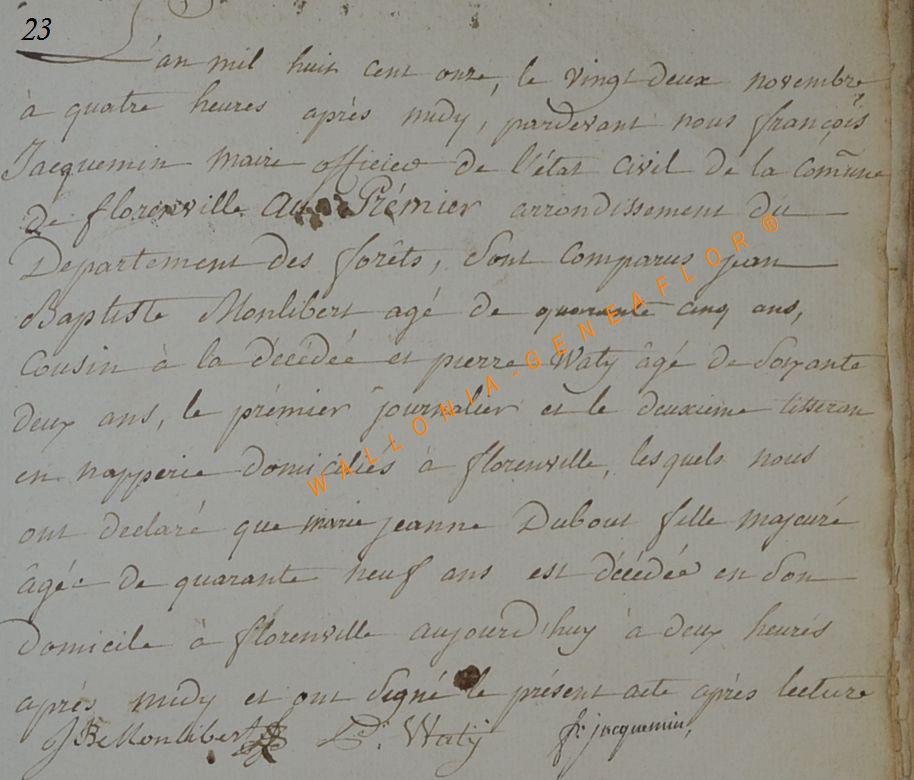 23
L'an mil huit cent onze, le vingt deux novembre
à quatre heures après midy, pardevant nous françois
Jacquemin maire officier de l'état Civil de la Comune
de florenville Au Prémier arrondissement du
Departement des forêts, Sont Comparus jean
Baptiste Monlibert agé de quarante cinq ans,
Cousin à la décédée et pierre Waty âgé de Soixante
deux ans, le prémier journalier et le deuxieme tisseran
en napperie domiciliés à florenville, lesquels nous
ont declaré que marie jeanne Dubout fille majeure
âgée de quarante neuf ans est décédée en Son
domicile à florenville aujourd'huy à deux heures
après midy et ont Signé le présent acte après lecture
JB Monlibert P. Waty fr. jacquemin,
WALLONIA-GENEAFLOR®